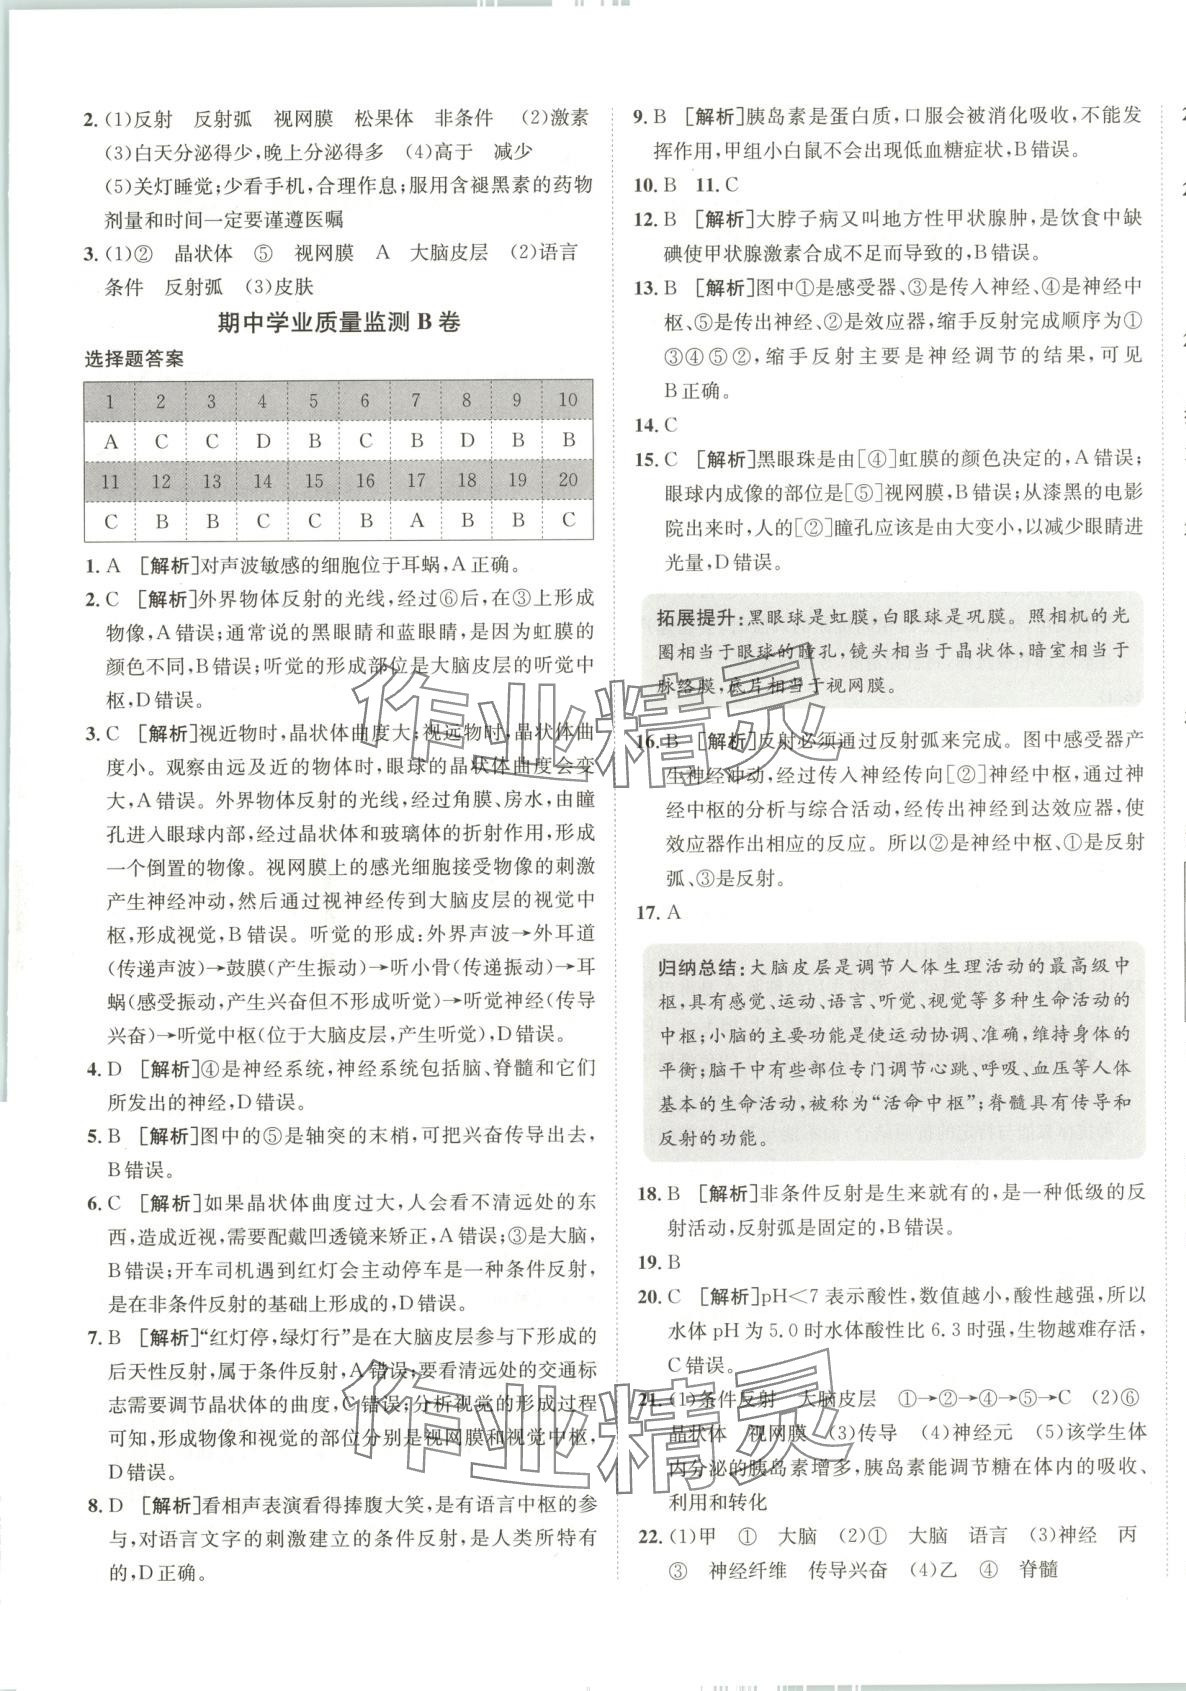 2. (1)反射　反射弧　视网膜　松果体　非条件　(2)激素
(3)白天分泌得少,晚上分泌得多　(4)高于　减少
(5)关灯睡觉;少看手机,合理作息;服用含褪黑素的药物
剂量和时间一定要谨遵医嘱
3. (1)②　晶状体　⑤　视网膜　A　大脑皮层　(2)语言
条件　反射弧　(3)皮肤
期中学业质量监测 B 卷
选择题答案
1 2 3 4 5 6 7 8 9 10
A C C D B C B D B B
11 12 13 14 15 16 17 18 19 20
C B B C C B A B B C
1. A　[解析]对声波敏感的细胞位于耳蜗,A正确。
2. C　[解析]外界物体反射的光线,经过⑥后,在③上形成
物像,A错误;通常说的黑眼睛和蓝眼睛,是因为虹膜的
颜色不同,B错误;听觉的形成部位是大脑皮层的听觉中
枢,D错误。
3. C　[解析]视近物时,晶状体曲度大;视远物时,晶状体曲
度小。观察由远及近的物体时,眼球的晶状体曲度会变
大,A错误。外界物体反射的光线,经过角膜、房水,由瞳
孔进入眼球内部,经过晶状体和玻璃体的折射作用,形成
一个倒置的物像。视网膜上的感光细胞接受物像的刺激
产生神经冲动,然后通过视神经传到大脑皮层的视觉中
枢,形成视觉,B错误。听觉的形成:外界声波→外耳道
(传递声波)→鼓膜(产生振动)→听小骨(传递振动)→耳
蜗(感受振动,产生兴奋但不形成听觉)→听觉神经(传导
兴奋)→听觉中枢(位于大脑皮层,产生听觉),D错误。
4. D　[解析]④是神经系统,神经系统包括脑、脊髓和它们
所发出的神经,D错误。
5. B　[解析]图中的⑤是轴突的末梢,可把兴奋传导出去,
B错误。
6. C　[解析]如果晶状体曲度过大,人会看不清远处的东
西,造成近视,需要配戴凹透镜来矫正,A错误;③是大脑,
B错误;开车司机遇到红灯会主动停车是一种条件反射,
是在非条件反射的基础上形成的,D错误。
7. B　[解析]“红灯停,绿灯行”是在大脑皮层参与下形成的
后天性反射,属于条件反射,A错误;要看清远处的交通标
志需要调节晶状体的曲度,C错误;分析视觉的形成过程
可知,形成物像和视觉的部位分别是视网膜和视觉中枢,
D错误。
8. D　[解析]看相声表演看得捧腹大笑,有语言中枢的参
与,对语言文字的刺激建立的条件反射,是人类所特有
的,D正确。
9. B　[解析]胰岛素是蛋白质,口服会被消化吸收,不能发
挥作用,甲组小白鼠不会出现低血糖症状,B错误。
10. B　11. C
12. B　[解析]大脖子病又叫地方性甲状腺肿,是饮食中缺
碘使甲状腺激素合成不足而导致的,B错误。
13. B　[解析]图中①是感受器、③是传入神经、④是神经中
枢、⑤是传出神经、②是效应器,缩手反射完成顺序为①
③④⑤②,缩手反射主要是神经调节的结果,可见
B正确。
14. C
15. C　[解析]黑眼珠是由[④]虹膜的颜色决定的,A错误;
眼球内成像的部位是[⑤]视网膜,B错误;从漆黑的电影
院出来时,人的[②]瞳孔应该是由大变小,以减少眼睛进
光量,D错误。
拓展提升:黑眼球是虹膜,白眼球是巩膜。照相机的光
圈相当于眼球的瞳孔,镜头相当于晶状体,暗室相当于
脉络膜,底片相当于视网膜。
16. B　[解析]反射必须通过反射弧来完成。图中感受器产
生神经冲动,经过传入神经传向[②]神经中枢,通过神
经中枢的分析与综合活动,经传出神经到达效应器,使
效应器作出相应的反应。所以②是神经中枢、①是反射
弧、③是反射。
17. A
归纳总结:大脑皮层是调节人体生理活动的最高级中
枢,具有感觉、运动、语言、听觉、视觉等多种生命活动的
中枢;小脑的主要功能是使运动协调、准确,维持身体的
平衡;脑干中有些部位专门调节心跳、呼吸、血压等人体
基本的生命活动,被称为“活命中枢”;脊髓具有传导和
反射的功能。
18. B　[解析]非条件反射是生来就有的,是一种低级的反
射活动,反射弧是固定的,B错误。
19. B
20. C　[解析]pH<7表示酸性,数值越小,酸性越强,所以
水体pH为5.0时水体酸性比6.3时强,生物越难存活,
C错误。
21. (1)条件反射　大脑皮层　①→②→④→⑤→C　(2)⑥
晶状体　视网膜　(3)传导　(4)神经元　(5)该学生体
内分泌的胰岛素增多,胰岛素能调节糖在体内的吸收、
利用和转化
22. (1)甲　①　大脑　(2)①　大脑　语言　(3)神经　丙
③　神经纤维　传导兴奋　(4)乙　④　脊髓
作业精灵
作业精灵